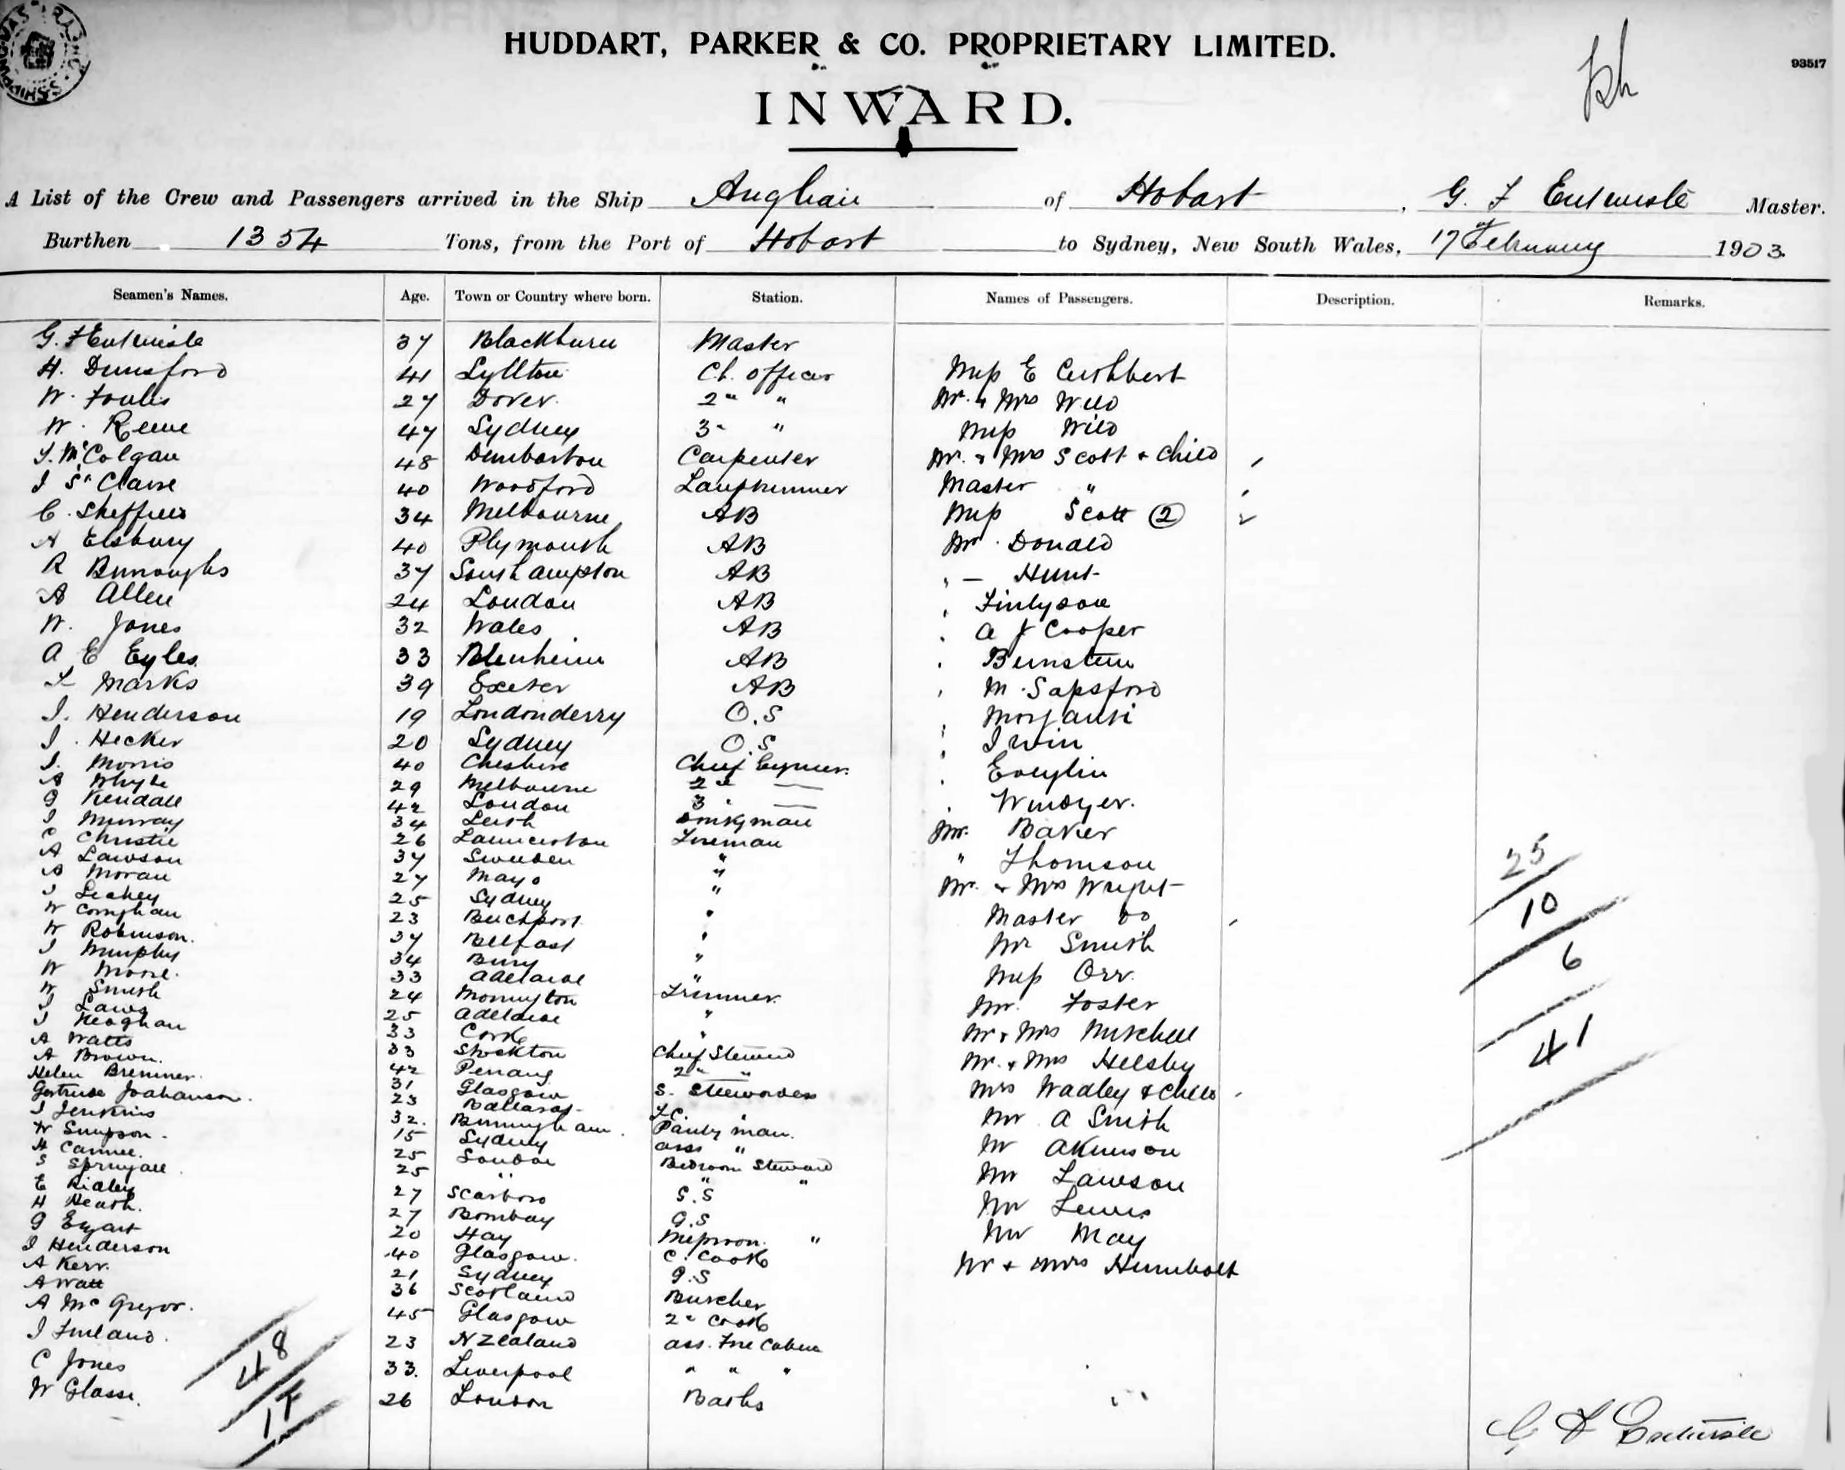 HUDDART, PARKER & CO. PROPRIETARY LIMITED.
93517
INWARD.
A List of the Crew and Passengers arrived in the Ship Anglian of Hobart, G. F Entwisle Master.
Burthen 1354 Tons, from the Port of Hobart to Sydney, New South Wales, 17 February 1903.
Seamen's Names. Age. Town or Country where born. Station. Names of Passengers. Description. Remarks.
G. F Entwisle 37 Blackburn Master
H. Dunsford 41 Ch. officer Miss E Cuthbert
W. Foulis 27 Dover. 2nd " Mr. & Mrs Wild
W. Reeve 47 Sydney 3 " Miss Wild
J. McColgan 48 Dumbarton Carpenter Mr. & Mrs Scott & Child
J St Claire 40 Woodford Lamptrimmer Master "
C. Sheffield 34 Melbourne AB Miss Scott 2
A Elsbury 40 Plymouth AB Mr. Donald
R Burroughs 37 Southampton AB Hunt
A Allen 24 London AB Finlyson
W. Jones 32 Wales AB A J Cooper
A E Eyles 33 Blenheim AB Bernstein
L Marks 39 Exeter AB M. Sapsford
J. Henderson 19 Londonderry O.S
J. Hecker 20 Sydney O.S Irwin
J. Morris 40 Cheshire Chief Evelyn
A Whyte 29 Melbourne 2nd
G Kendall 42 London 3 Windyer.
J Murray 34 Leith Donkyman Mr. Baker
C Christie 26 Launceston Fireman
A Lawson 37 Sweden " " Thomson
A Moran 27 Mayo " Mr. & Mrs Wright
J Leahey 25 Sydney "
W 23 Master do
W Robinson. 37 Belfast Mr Smith
J Murphy 34 Bury " Miss Orr.
W Moore. 33 Adelaide "
W Smith 24 Mornington Trimmer Mr. Foster
J Laws 25 Adelaide "
J Heaghan 33 Cork " Mr & Mrs Mitchell
A Watts 33 Stockton Chief Steward
A Brown. 42 Penang 2nd " Mr. & Mrs Helsby
Helen Bremner. 31 Glasgow S. Stewardess
Gertrude Joahanson. 23 Ballarat F.C. " Mrs Wadley & Child
J Jenkins 32. Birmingham. Pantryman. Mr A Smith
W Simpson. 15 Sydney ass "
H 25 London Bedroom Steward Mr Akinson
S 25 " " " Mr Lawson
E Ridley 27 Scarboro S.S Mr Lewis
H Heath. 27 Bombay G.S
G 20 Hay Messroom. " Mr May
J Henderson 40 Glasgow. C. Cook Mr & Mrs Humbolt
A Kerr. 21 Sydney G.S
A Watt 36 Scotland Butcher
A McGregor. 45 Glasgow 2nd Cook
J 23 N Zealand ass. Fre Cabin
C Jones 33. Liverpool " " "
W Glasse. 26 London Baths
25
10
6
41
48
G F Entwisle